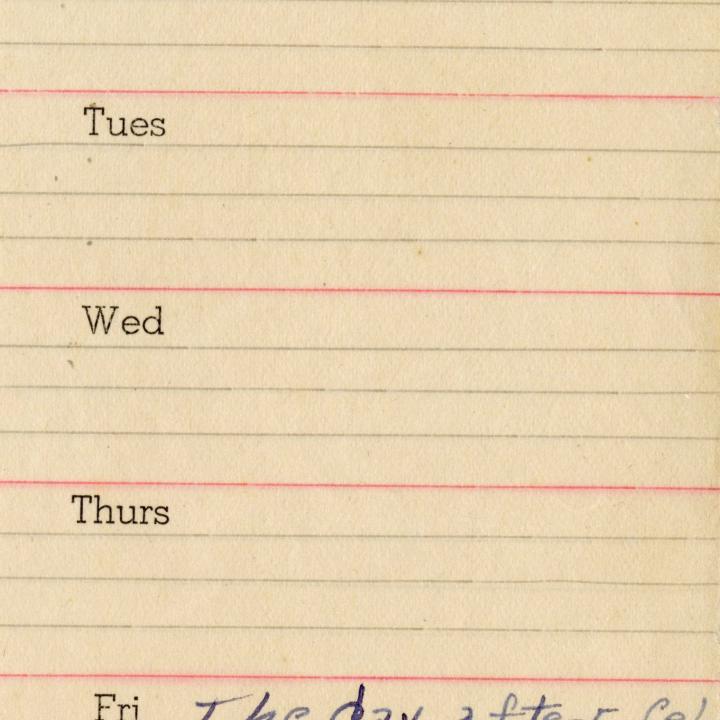 Tues
Wed
Thurs
Fri The day after